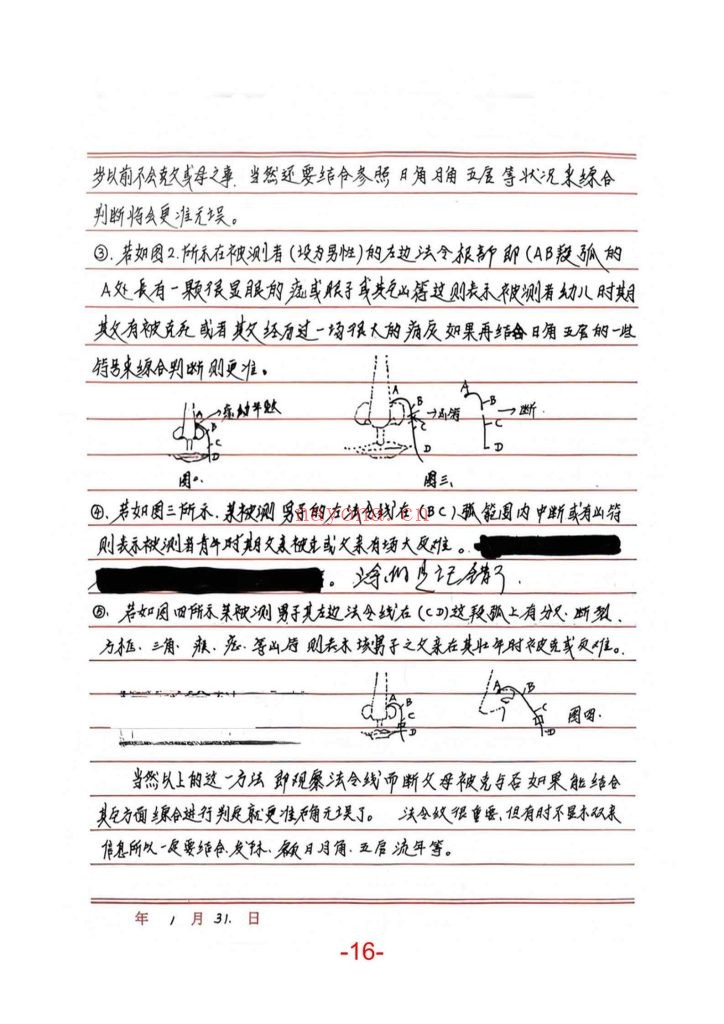 岁以前不会克父或母之事.当然还要结合参照日角月角五层等状况来综合
判断将会更准无误。
③.若如图2.所示在被测者(设为男性)的左边法令根部即(AB段弧的
A处长有一颗很显眼的痣或眼子或其它凶符这则表示被测者幼儿时期
其父有被克死或者其父经历过一场很大的病灾如果再结合日角五层的一些
符号来综合判断则更准。
A B C D
图2.
A B →凶符 C D
图三、
A B C D →断
④.若如图三所示.某被测男子的左法令线在(BC)弧范围内中断或有凶符
则表示被测者青年时期父亲被克或父亲有场大灾难。
。
⑤.若如图四所示某被测男子其左边法令线在(CD)这段弧上有分叉.断裂.
方框.三角.痕.痣.等凶符则表示该男子之父亲在其壮年时被克或灾难。
A B C D
A B C D 图四.
当然以上的这一方法即观察法令线而断父母被克与否如果能结合
其它方面综合进行判定就更准确无误了。法令纹很重要,但有时不显示双亲
信息所以一定要结合.发际.额日月角.五层流年等。
年1月31.日
-16-